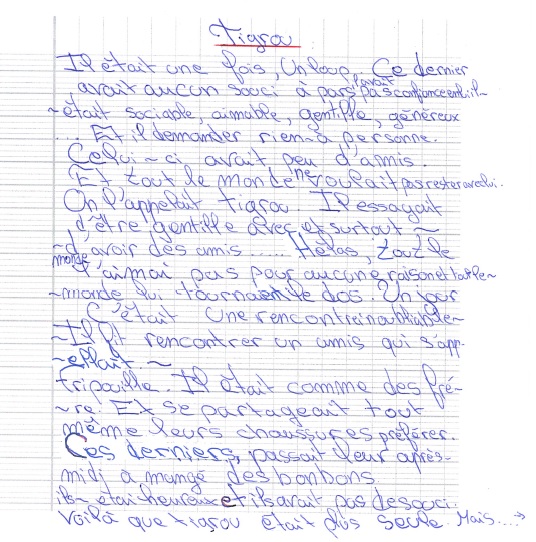 Tigrou
Il était une fois, Un loup, Ce dernier
avait aucun souci à pars l'avait pas confiance en lui il~
~ était sociable, aimable, gentille, généreux
.... Et il demander rien à personne.
Celui~ci avait peu d'amis.
Et tout le monde ne voulait pas rester avec lui.
On l'appelait tigrou Il essayait
d'être gentille avec et surtout ~
~d'avoir des amis ..... Hélas, tout le
monde l'aimai pas pour aucune raison et tout le~
~monde lui tournaent le dos. Un jour
C'était Une rencontre inoubliable~
~Il fit rencontrer un amis qui s'app-
~ellait. ~
tripouille. Il était comme des fré-
~re. Et se partageait tout
même leurs chaussures préférer.
Ces derniers, passait leur après-
midi a mangé des bonbons.
ils~ étai heureux et ils avait pas de souci.
Voilà que tigrou était plus seule. Mais....→